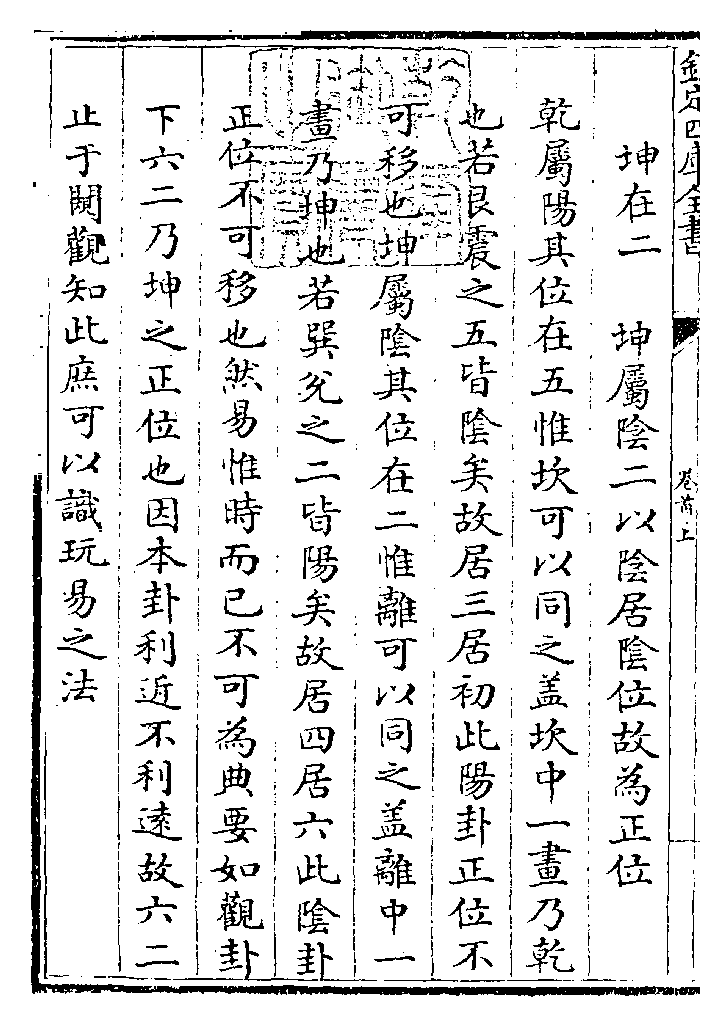 欽定四庫全書
卷首上
坤在二　坤屬陰二以陰居陰位故為正位
乾屬陽其位在五惟坎可以同之蓋坎中一畫乃乾
也若艮震之五皆陰矣故居三居初此陽卦正位不
可移也坤屬陰其位在二惟離可以同之盖離中一
畫乃坤也若巽兊之二皆陽矣故居四居六此陰卦
正位不可移也然易惟時而已不可為典要如觀卦
下六二乃坤之正位也因本卦利近不利逺故六二
止于闚觀知此庶可以識玩易之法